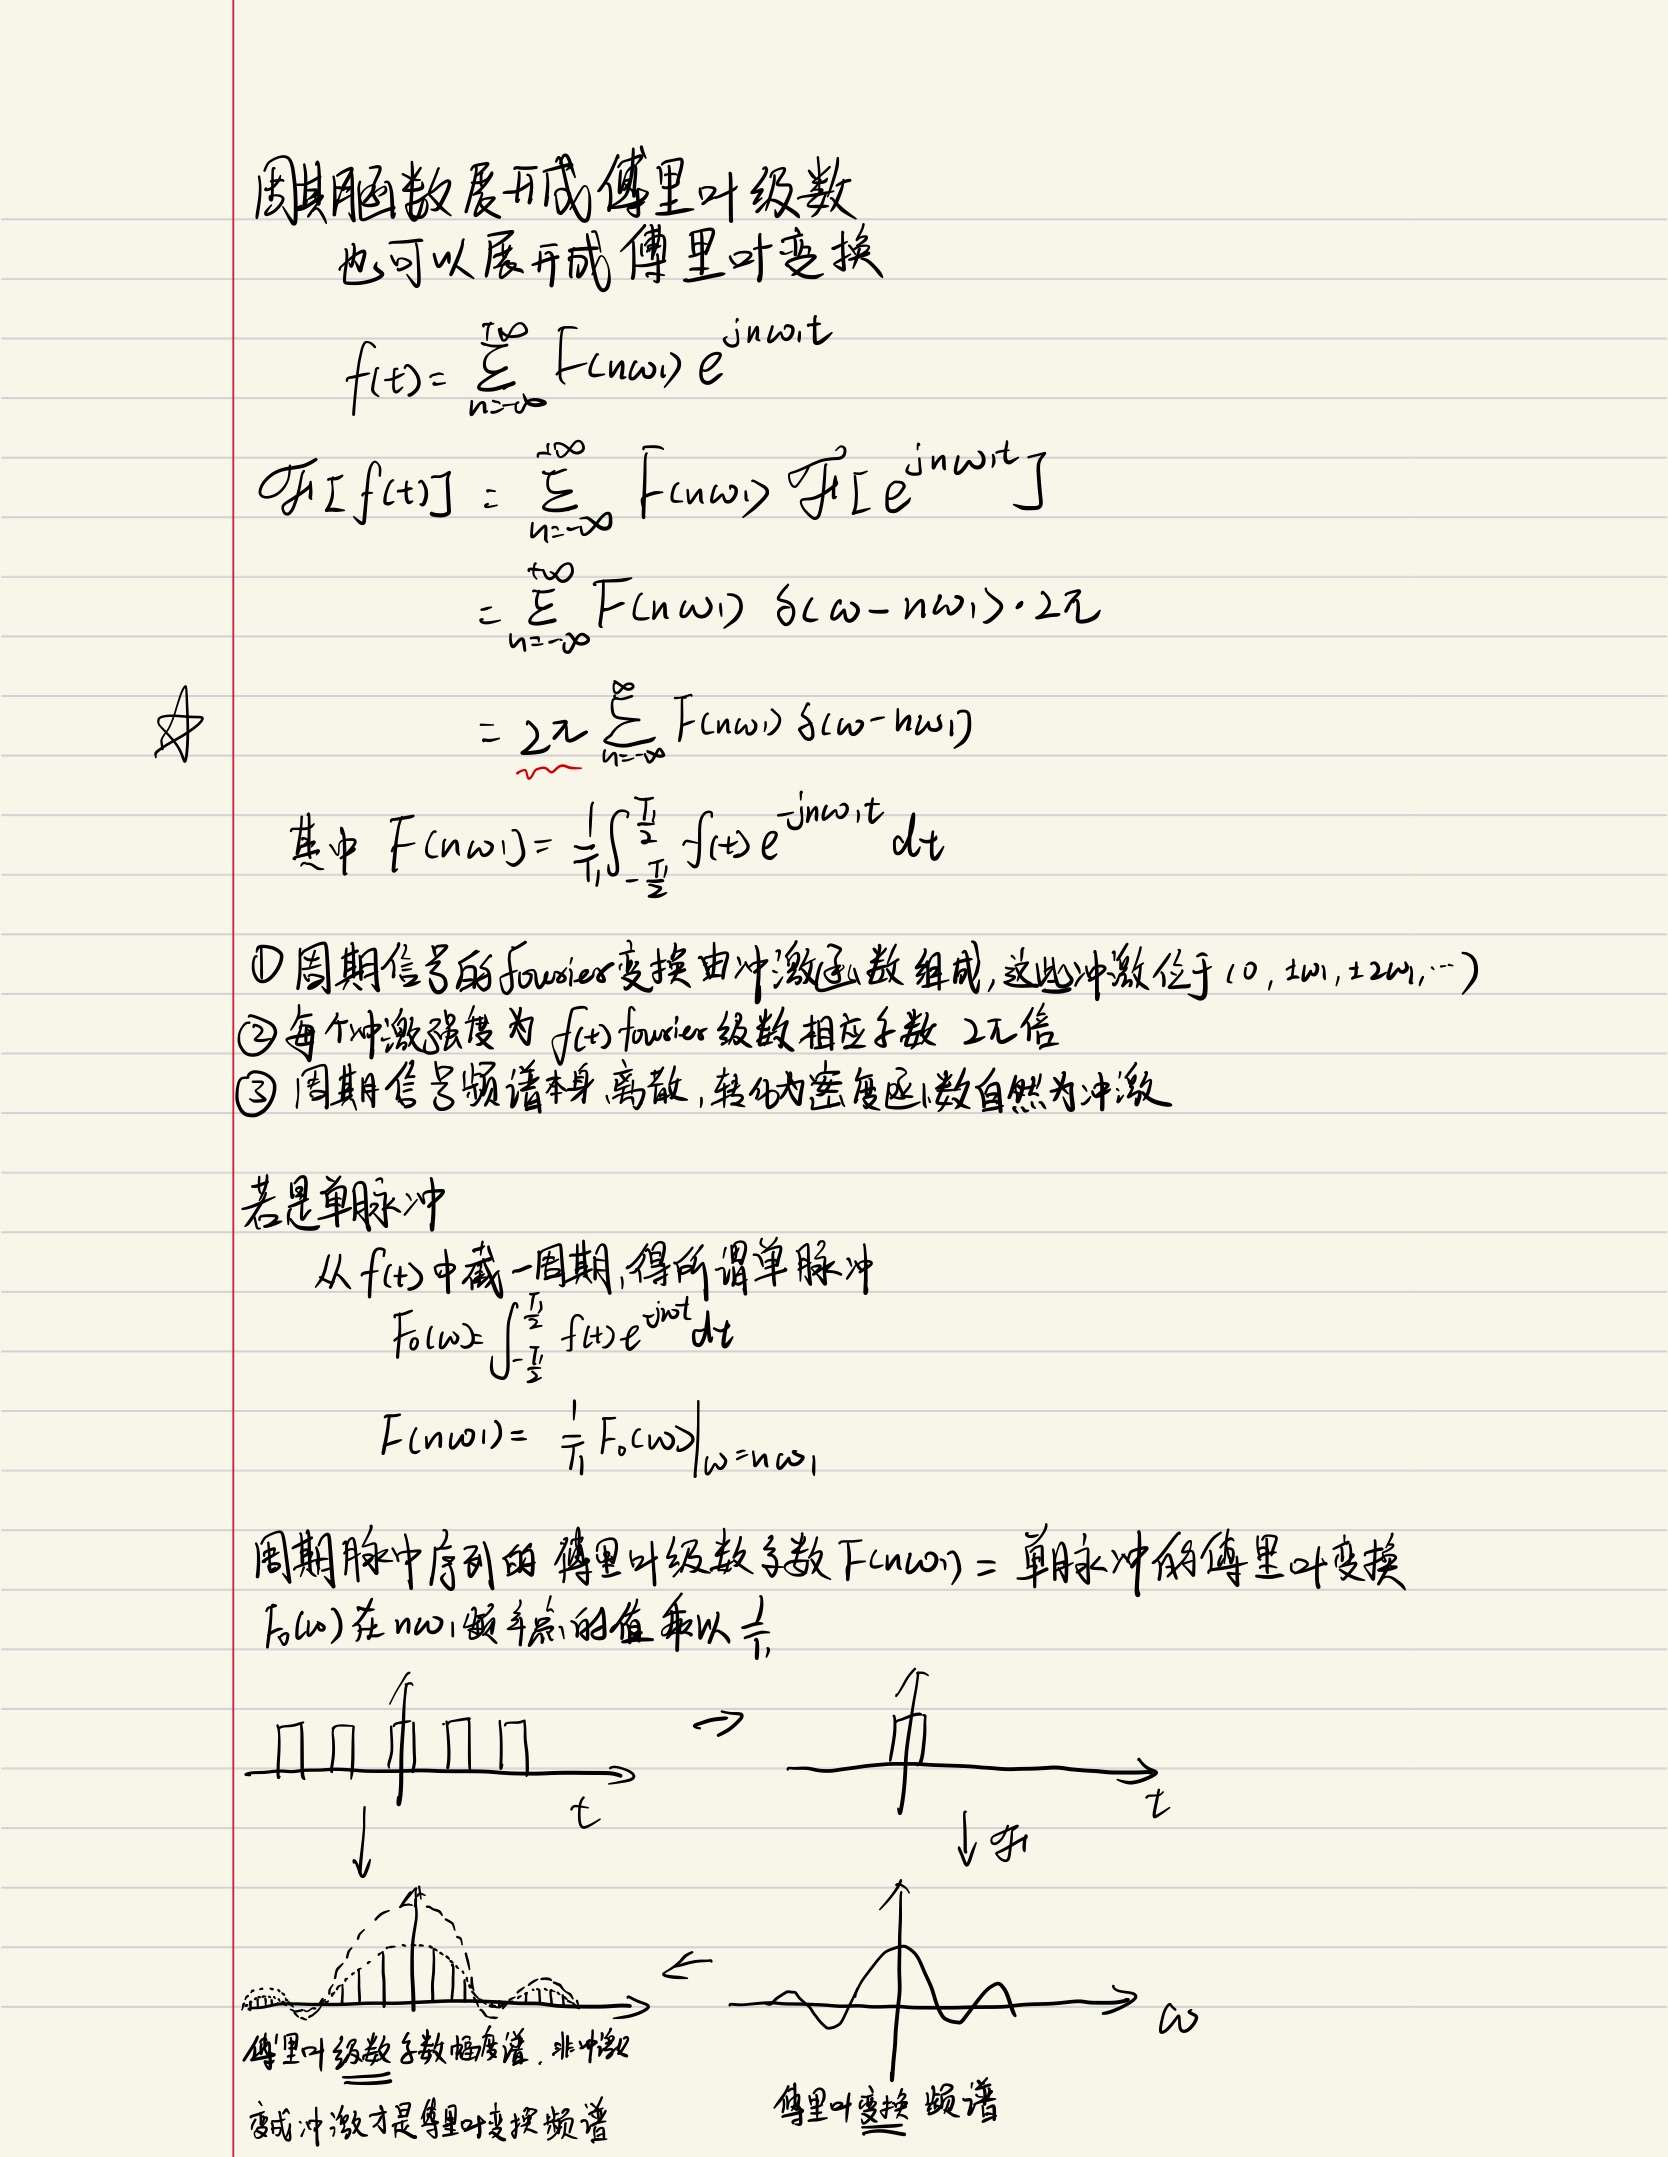 周期函数展开成傅里叶级数
也可以展开成傅里叶变换
f(t) = ∑_{n=-∞}^{+∞} F(nω₁) e^{jnω₁t}
ℱ[f(t)] = ∑_{n=-∞}^{+∞} F(nω₁) ℱ[e^{jnω₁t}]
= ∑_{n=-∞}^{+∞} F(nω₁) δ(ω-nω₁)·2π
= 2π ∑_{n=-∞}^{∞} F(nω₁) δ(ω-nω₁)
其中 F(nω₁) = 1/T₁ ∫_{-T₁/2}^{T₁/2} f(t) e^{-jnω₁t} dt
① 周期信号的fourier变换由冲激函数组成,这些冲激位于(0, ±ω₁, ±2ω₁, …)
② 每个冲激强度为 f(t) fourier级数相应系数 2π倍
③ 周期信号频谱本身离散,转化为密度函数自然为冲激
若是单脉冲
从f(t)中截一周期,得所谓单脉冲
F₀(ω) = ∫_{-T₁/2}^{T₁/2} f(t) e^{-jωt} dt
F(nω₁) = 1/T₁ F₀(ω)|_{ω=nω₁}
周期脉冲序列的 傅里叶级数系数F(nω₁) = 单脉冲的傅里叶变换
F₀(ω)在nω₁频率点的值乘以 1/T₁
t
t
ℱ
ω
傅里叶级数系数幅度谱.非冲激
变成冲激才是傅里叶变换频谱
傅里叶变换频谱